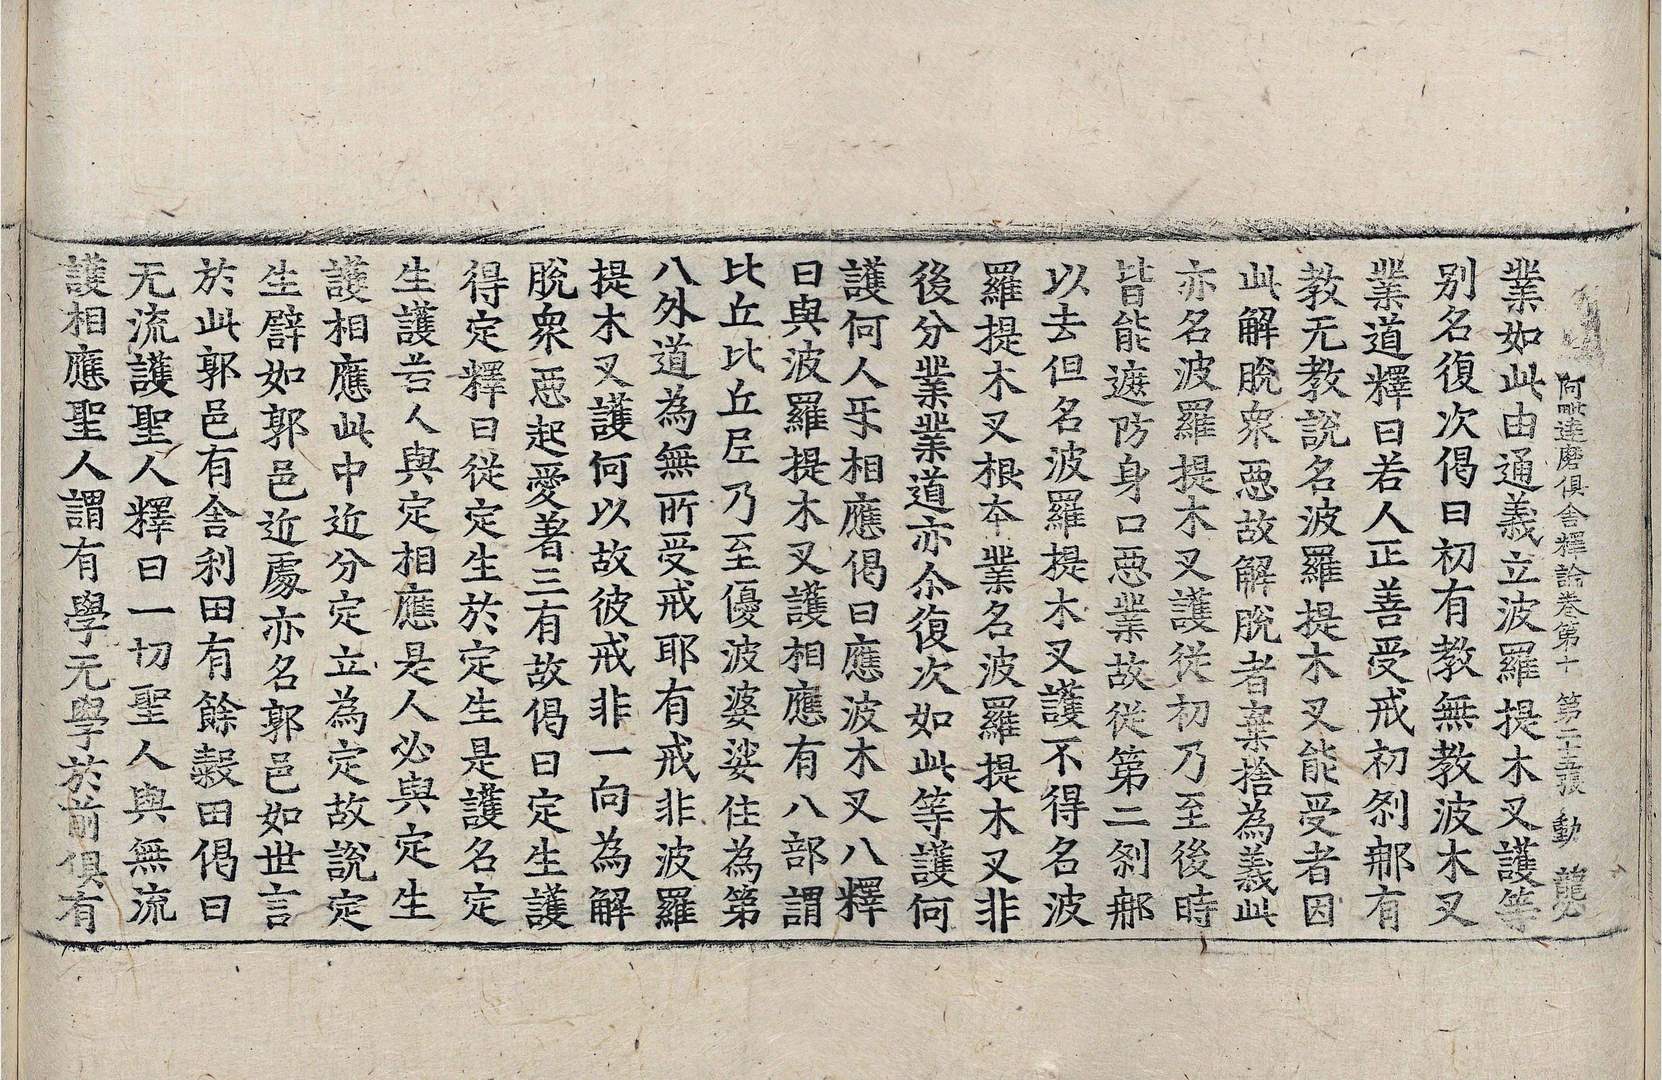 阿毗達磨俱舍釋論卷第十 第二十五張 動
業如此由通義立波羅提木叉護等
別名復次偈曰初有教無教波木叉
業道釋曰若人正善受戒初剎那有
教无教說名波羅提木叉能受者因
此解脫衆惡故解脫者棄捨為義此
亦名波羅提木叉護從初乃至後時
皆能遮防身口惡業故從第二剎那
以去但名波羅提木叉護不得名波
羅提木叉根本業名波羅提木叉非
後分業業道亦尒復次如此等護何
護何人㸦相應偈曰應波木叉八釋
曰與波羅提木叉護相應有八部謂
比丘比丘尼乃至優波婆娑住為第
八外道為無所受戒耶有戒非波羅
提木叉護何以故彼戒非一向為解
脫衆惡起愛著三有故偈曰定生護
得定釋曰從定生於定生是護名定
生護若人與定相應是人必與定生
護相應此中近分定立為定故說定
生譬如郭邑近處亦名郭邑如世言
於此郭邑有舍利田有餘穀田偈曰
无流護聖人釋曰一切聖人與無流
護相應聖人謂有學无學於前俱有